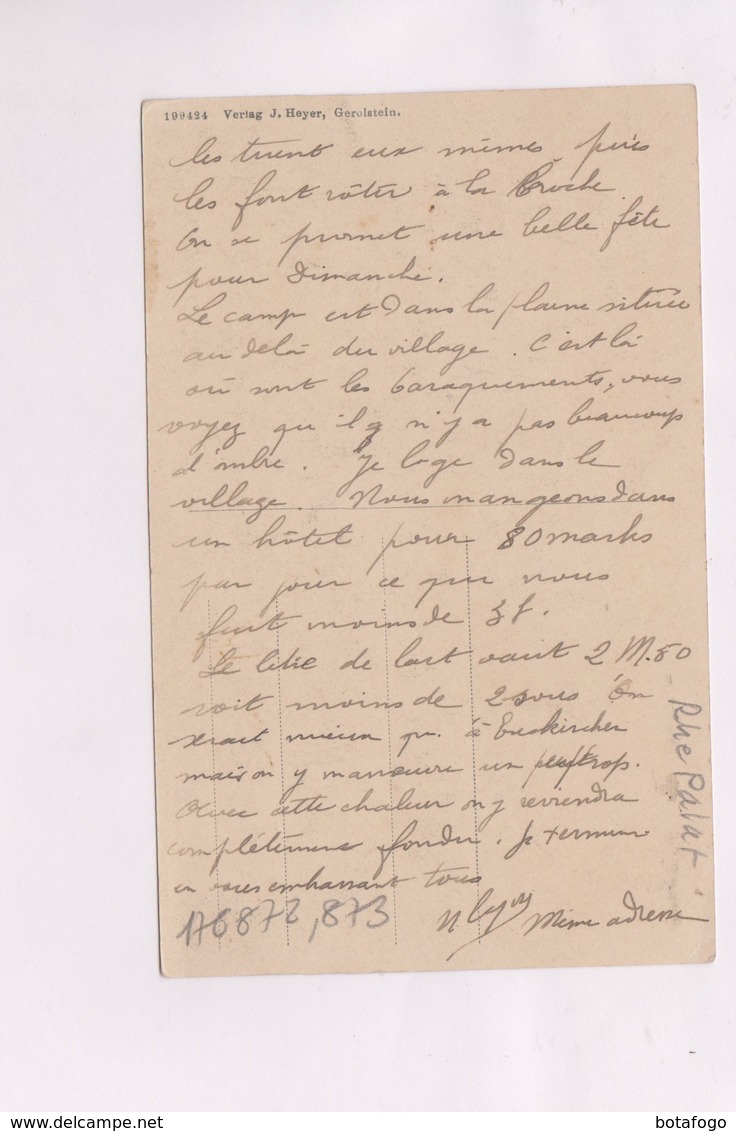 199424 Verlag J. Heyer, Gerolstein.
les tuent eux mêmes, puis
les font rôtir à la broche
On se promet une belle fête
pour Dimanche.
Le camp est dans la plaine située
au delà du village. C'est là
où sont les baraquements, vous
voyez qu'il n'y a pas beaucoup
d'ombre. Je loge dans le
village. Nous mangeons dans
un hôtel pour 80 marks
par jour ce qui nous
fait moins de 3 f.
Le litre de lait vaut 2 M.80
soit moins de 2 sous On
serait mieux qu'à Euskirchen
mais on y manœuvre un peu trop.
Avec cette chaleur on y reviendra
complètement fondu. Je termine
en vous embrassant tous
Même adresse
176872,873
Rhe Palat
delcampe.net
botafogo